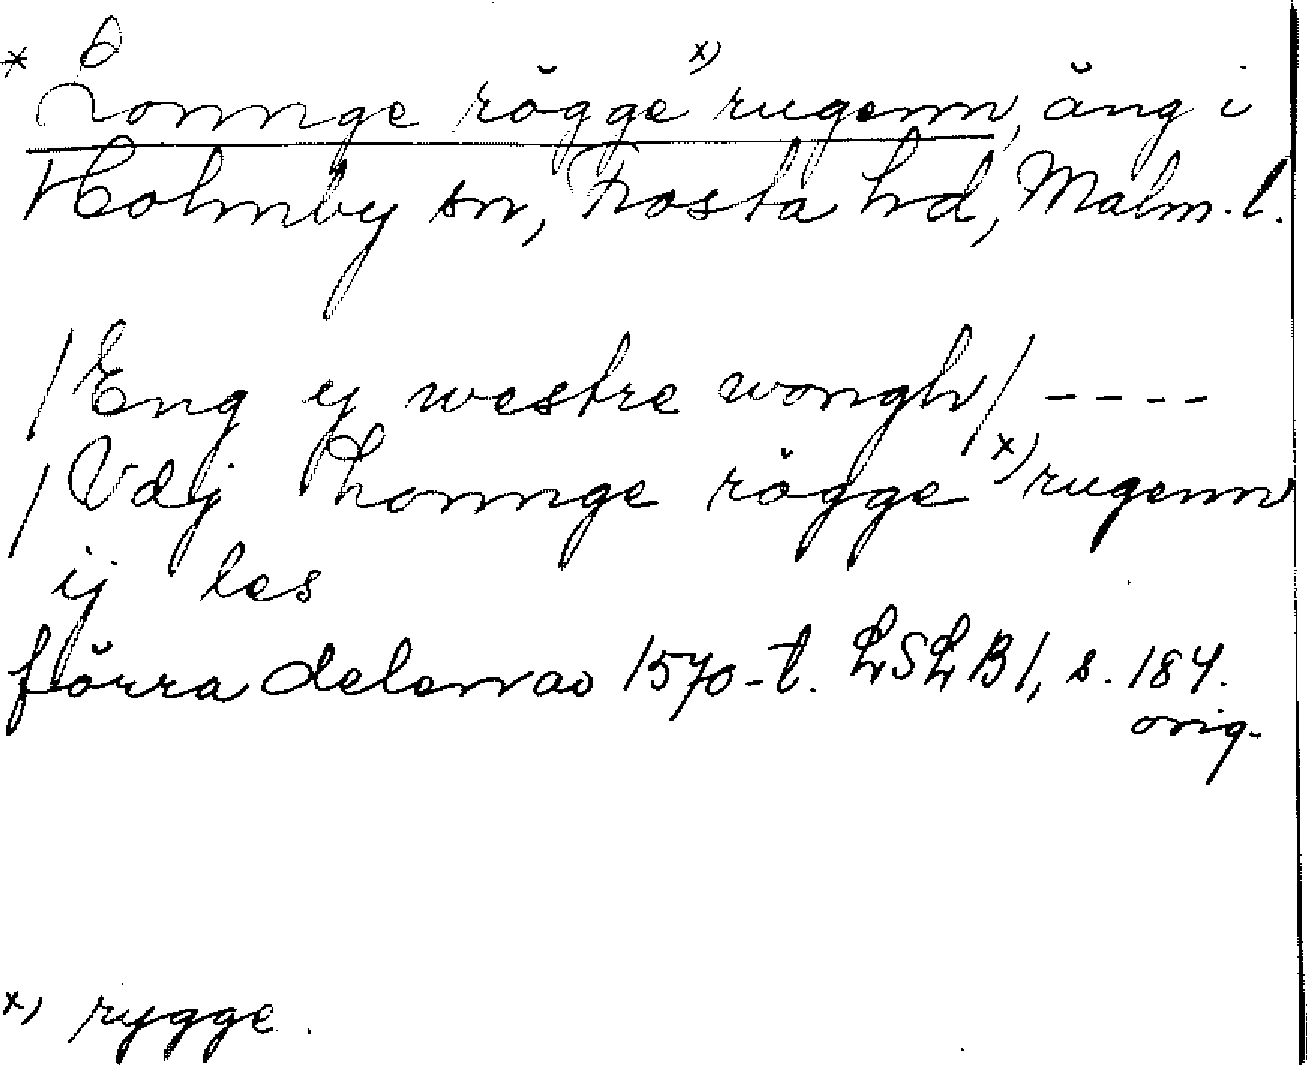 * Lonnge rögge x) rugenn, äng i
Holmby sn, Frosta hd, Malm. l.
/Eng y westre wongh/ ----
/Vdj Lonnge rögge x) rugenn
ij les
förra delen av 1570-t. LSLB1, s. 184.
orig.
x) rygge.